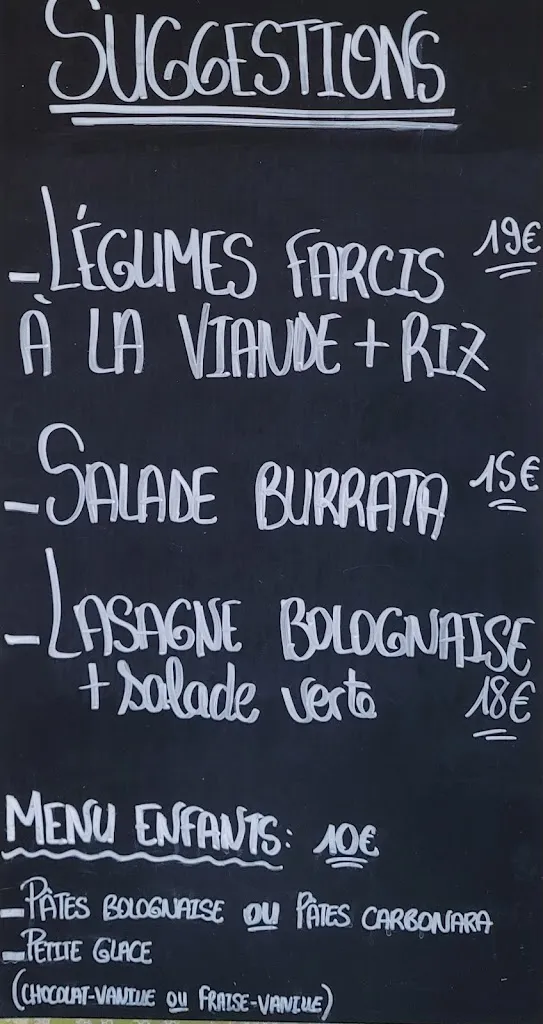 SUGGESTIONS
- LÉGUMES FARCIS 19€
À LA VIANDE + RIZ
- SALADE BURRATA 15€
- LASAGNE BOLOGNAISE
+ Salade verte 18€
MENU ENFANTS: 10€
- PÂTES BOLOGNAISE OU PÂTES CARBONARA
- PETITE GLACE
(CHOCOLAT-VANILLE OU FRAISE-VANILLE)